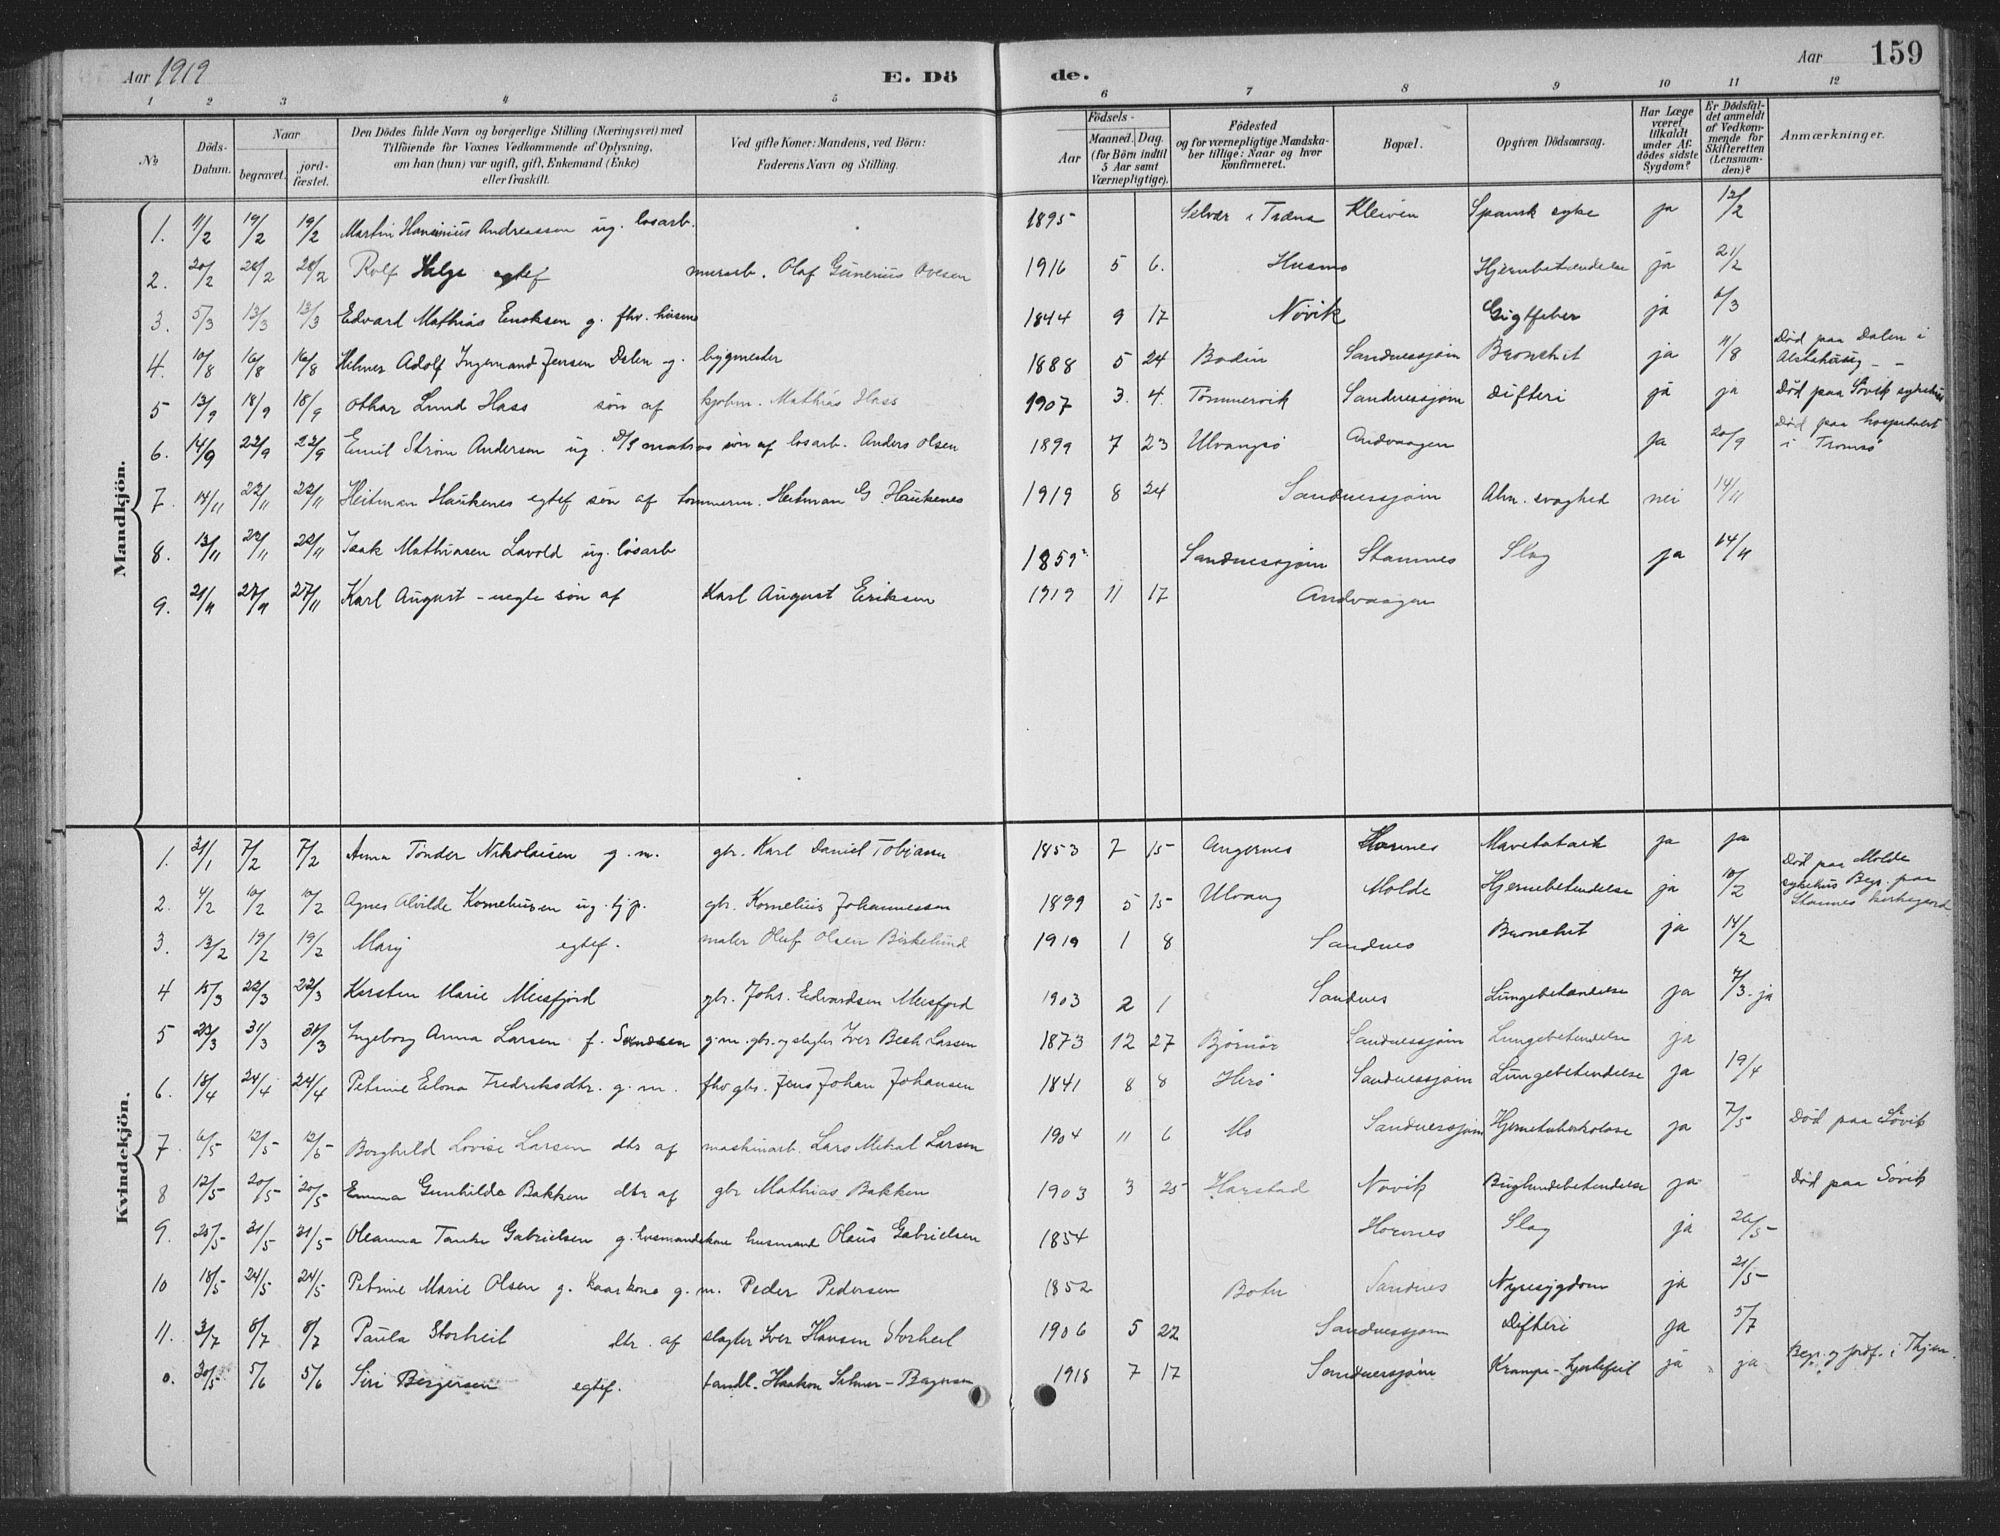 Aar 1919 E. Dö de. Aar 159
1 2 3 4 5 6 7 8 9 10 11 12
No
Döds-Datum.
Naar begravet. jordfæstet.
Den Dödes fulde Navn og borgerlige Stilling (Næringsvei) med Tilföiende for Voxnes Vedkommende af Oplysning, om han (hun) var ugift, gift, Enkemand (Enke) eller fraskilt.
Ved gifte Koner: Mandens, ved Börn: Faderens Navn og Stilling.
Födsels- Aar Maaned. Dag. (for Börn indtil 5 Aar samt Værnepligtige).
Födested og for værnepligtige Mandskaber tillige: Naar og hvor konfirmeret.
Bopæl.
Opgiven Dödsaarsag.
Har Læge været tilkaldt under Afdödes sidste Sygdom?
Er Dödsfaldet anmeldt af Vedkommende for Skifteretten (Lensmanden)?
Anmærkninger.
Mandkjön.
1. 11/2 19/2 19/2 Martin Hansinius Andreassen ug. losarb. 1895 Selvær i Træna Kleiven Spansk syke ja 12/2
2. 20/2 28/2 28/2 Rolf Helge egtef murarb. Olaf Gunerius Ovesen 1916 5 6. Husmo Hjernbetændelse ja 21/2
3. 5/3 13/3 13/3 Edvard Mathias Enoksen g. fhv. husm 1844 9 17 Novik Gigtfeber ja 6/3
4. 10/8 16/8 16/8 Helmer Adolf Ingemand Jensen Dalen g. bygmester 1888 5 24 Bodin Sandnessjøen Bronchit ja 11/8 Død paa Dalen i Alstahaug
5 13/9 18/9 18/9 Othar Lund Hass søn af kjøbm. Mathias Hass 1907 3. 4. Tømmervik Sandnessjøen Difteri ja ja Død paa Søvik sykehus
6. 14/9 22/9 22/9 Emil Strøm Andersen ug. D/S matros søn af losarb. Anders Olsen 1899 7 23 Ulvangsø Andvaagen ja 20/9 Død paa hospitalet i Tromsø
7. 14/11 22/11 22/11 Heitman Haukenes egtef søn af tømmerm. Heitman G Haukenes 1919 8 24 Sandnessjøen Alm. svaghed nei 14/11
8. 13/11 22/11 22/11 Isak Mathiasen Lavold ug. løsarb 1859 Sandnessjøen Stamnes Slag ja 14/11
9. 21/11 27/11 27/11 Karl August - uegte søn af Karl August Eriksen 1919 11 17 Andvaagen
Kvindekjön.
1. 31/1 7/2 7/2 Anna Tønder Nikolaisen g. m. gbr. Karl Daniel Tobiassen 1853 7 15 Angernes Hornes Mavekatarh ja ja
2. 4/2 10/2 10/2 Agnes Alvilde Korneliusen ug. tjp. gbr. Kornelius Johannessen 1899 5 15 Ulvang Molde Hjernebetendelse ja 10/2 Død paa Molde sykehus Begr. paa Stamnes kirkegaard
3. 13/2 19/2 19/2 Mary egtef. maler Oluf Olsen Birkelund 1919 1 8 Sandnes Bronchit ja 14/2
4 15/3 22/3 22/3 Karsten Marie Meisfjord gbr. Johs. Edvardsen Meisfjord 1903 2 1 Sandnes Lungebetændelse ja 7/3 ja
5 23/3 31/3 31/3 Ingeborg Anna Larsen f. Svendsen g.m. gbr. og slagter Iver Bech Lassen 1873 12 27 Bjørnør Sandnessjøen Lungebetendelse ja
6. 18/4 24/4 24/4 Petrine Elona Fredriksdtr. g. m. fhv gbr. Jens Johan Johansen 1841 8 8 Herø Sandnessjøen Lungebetendelse ja 19/4
7 6/5 12/5 12/5 Borghild Lovise Larsen dtr af maskinarb. Lars Mikal Larsen 1904 11 6 Mo Sandnessjøen Hjernetuberkolose ja 7/5 Død paa Søvik
8 12/5 20/5 20/5 Emma Gunhilde Bakken dtr af gbr Mathias Bakken 1903 3 25 Harstad Novik Bughindebetendelse ja Død paa Søvik
9. 25/5 31/5 31/5 Oleanna Tanke Gabrielsen g. husmandskone husmand Olaus Gabrielsen 1854 Hornes Slag ja 26/5
10 18/5 24/5 24/5 Petrine Marie Olsen g. kaarkone g. m. Peder Pedersen 1852 Botn Sandnes Nyresygdom ja 21/5
11. 3/7 8/7 8/7 Paula Storheil dtr. af slagter Iver Hansen Storheil 1906 5 22 Sandnessjøen Difteri ja 5/7
0. 30/5 5/6 5/6 Siri Bergersen egtef. tandl. Haakon 1918 7 17 Sandnessjøen Krampe-hjertefeil ja ja Begr. og jordf. i Thjøn.